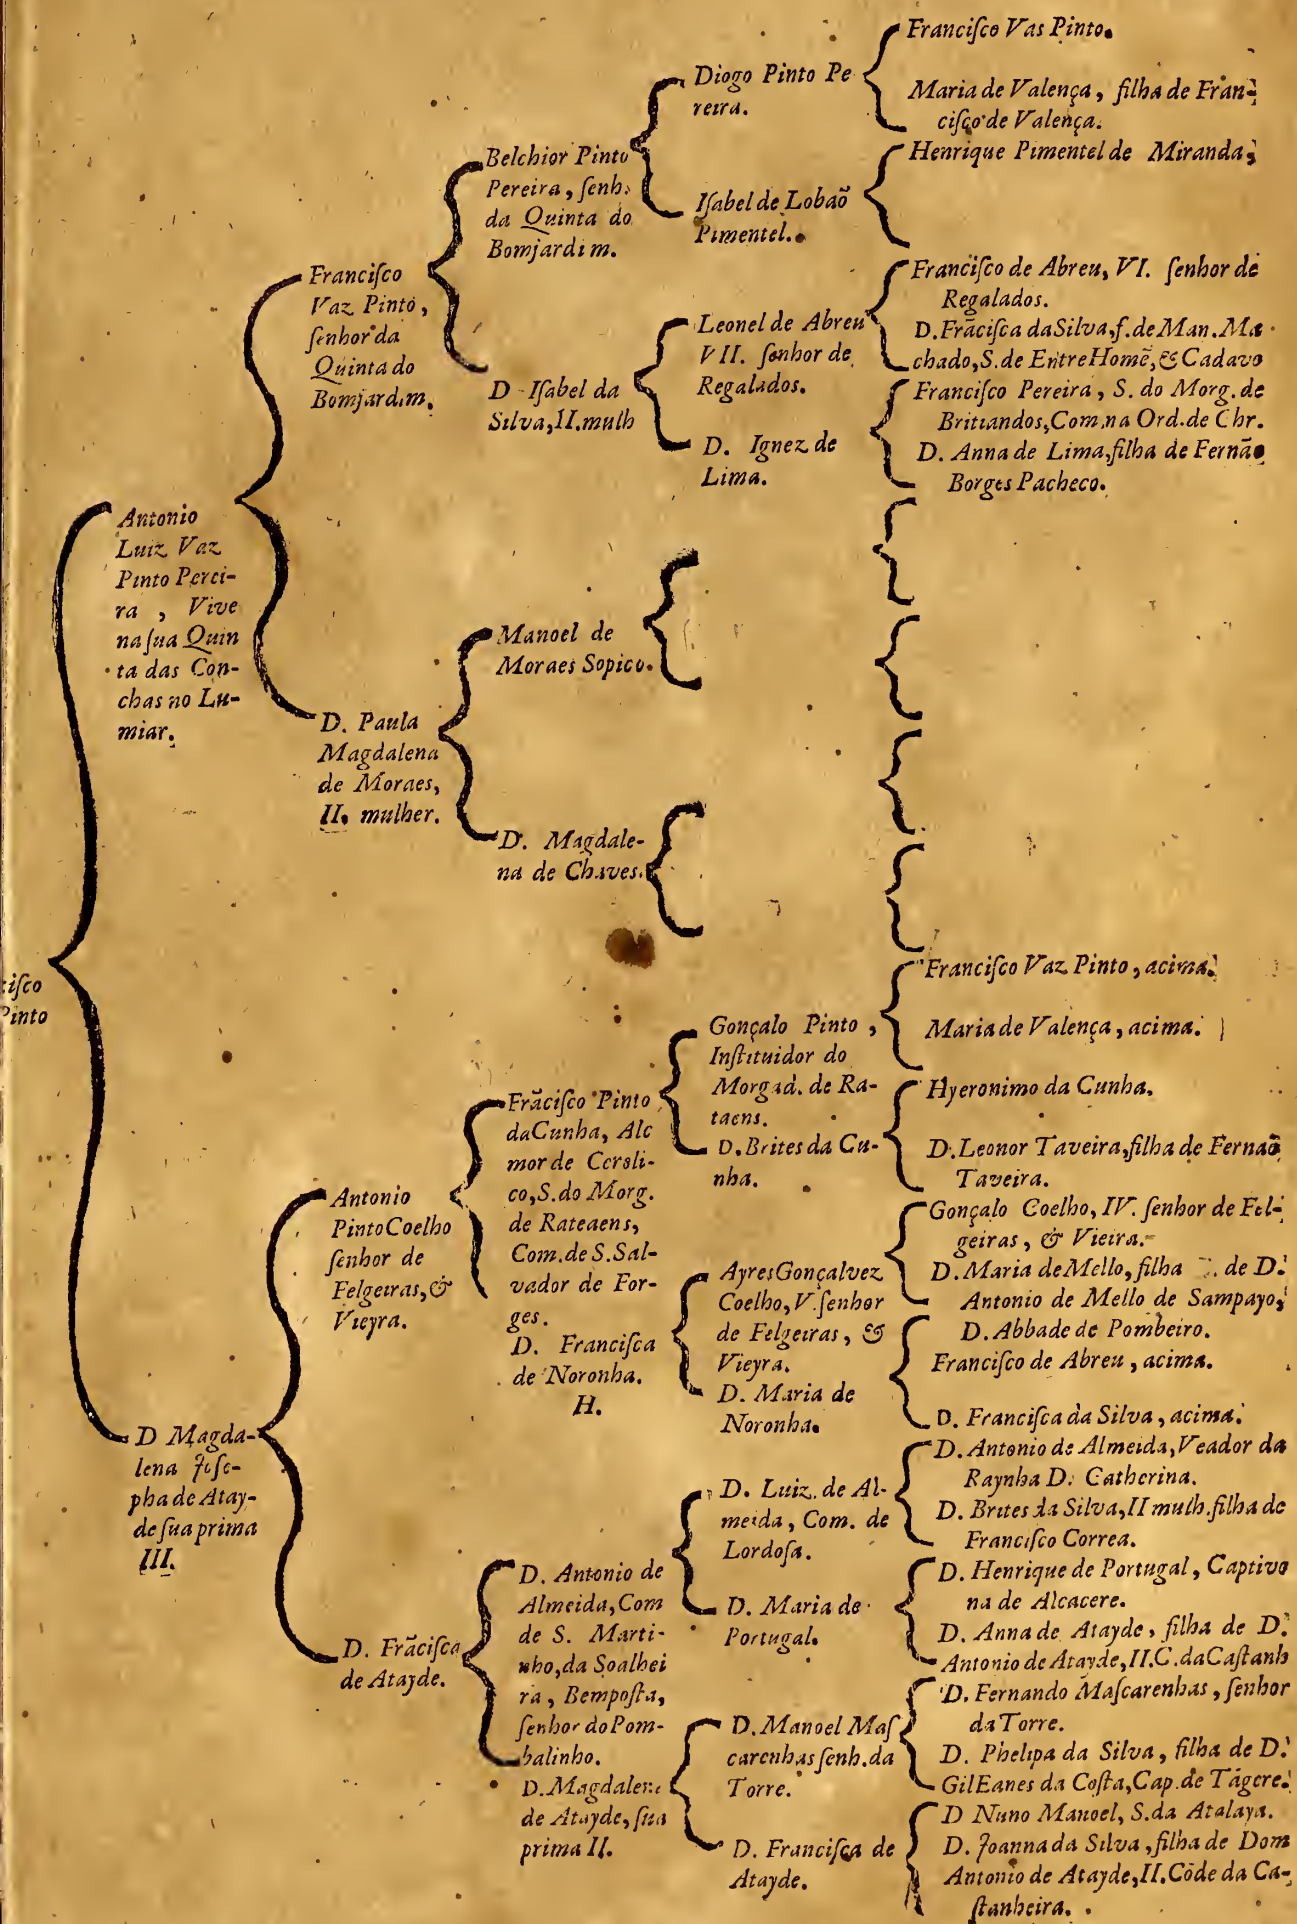 cisco
Pinto
Antonio
Luiz Vaz
Pinto Perei-
ra , Vive
na ſua Quin
ta das Con-
chas no Lu-
miar.
D Magda-
lena Joſe-
pha de Atay-
de ſua prima
III.
Franciſco
Vaz Pinto,
ſenhor da
Quinta do
Bomjardim.
D. Paula
Magdalena
de Moraes,
II. mulher.
Antonio
Pinto Coelho
ſenhor de
Felgeiras, &
Vieyra.
D. Frãciſca
de Atayde.
Belchior Pinto
Pereira, ſenh.
da Quinta do
Bomjardim.
D Iſabel da
Silva, II. mulh
Manoel de
Moraes Sopico.
D. Magdale-
na de Chaves.
Frãciſco Pinto
da Cunha, Alc
mor de Ceroli-
co, S. do Morg.
de Rateaens,
Com. de S. Sal-
vador de For-
ges.
D. Franciſca
de Noronha.
H.
D. Antonio de
Almeida, Com
de S. Marti-
nho, da Soalhei
ra, Bempoſta,
ſenhor do Pom-
balinho.
D. Magdalena
de Atayde, ſua
prima II.
Diogo Pinto Pe
reira.
Iſabel de Lobaõ
Pimentel.
Leonel de Abreu
VII. ſenhor de
Regalados.
D. Ignez de
Lima.
Gonçalo Pinto ,
Inſtituidor do
Morgad. de Ra-
taens.
D. Brites da Cu-
nha.
Ayres Gonçalvez
Coelho, V. ſenhor
de Felgeiras, &
Vieyra.
D. Maria de
Noronha.
D. Luiz de Al-
meida, Com. de
Lordoſa.
D. Maria de
Portugal.
D. Manoel Maſ
carenhas ſenh. da
Torre.
D. Franciſca de
Atayde.
Franciſco Vas Pinto.
Maria de Valença, filha de Fran-
ciſco de Valença.
Henrique Pimentel de Miranda,
Franciſco de Abreu, VI. ſenhor de
Regalados.
D. Frãciſca da Silva, f. de Man. Ma
chado, S. de Entre Homẽ, & Cadavo
Franciſco Pereira, S. do Morg. de
Britiandos, Com. na Ord. de Chr.
D. Anna de Lima, filha de Fernão
Borges Pacheco.
Franciſco Vaz Pinto, acima.
Maria de Valença, acima.
Hyeronimo da Cunha.
D. Leonor Taveira, filha de Fernaõ
Taveira.
Gonçalo Coelho, IV. ſenhor de Fel-
geiras, & Vieira.
D. Maria de Mello, filha de D.
Antonio de Mello de Sampayo,
D. Abbade de Pombeiro.
Franciſco de Abreu, acima.
D. Franciſca da Silva, acima.
D. Antonio de Almeida, Veador da
Raynha D. Catherina.
D. Brites da Silva, II mulh. filha de
Franciſco Correa.
D. Henrique de Portugal, Captivo
na de Alcacere.
D. Anna de Atayde, filha de D.
Antonio de Atayde, II. C. da Caſtanh
D. Fernando Maſcarenhas, ſenhor
da Torre.
D. Phelipa da Silva, filha de D.
Gil Eanes da Coſta, Cap. de Tãgere.
D Nuno Manoel, S. da Atalaya.
D. Joanna da Silva, filha de Dom
Antonio de Atayde, II. Cõde da Ca-
ſtanheira.